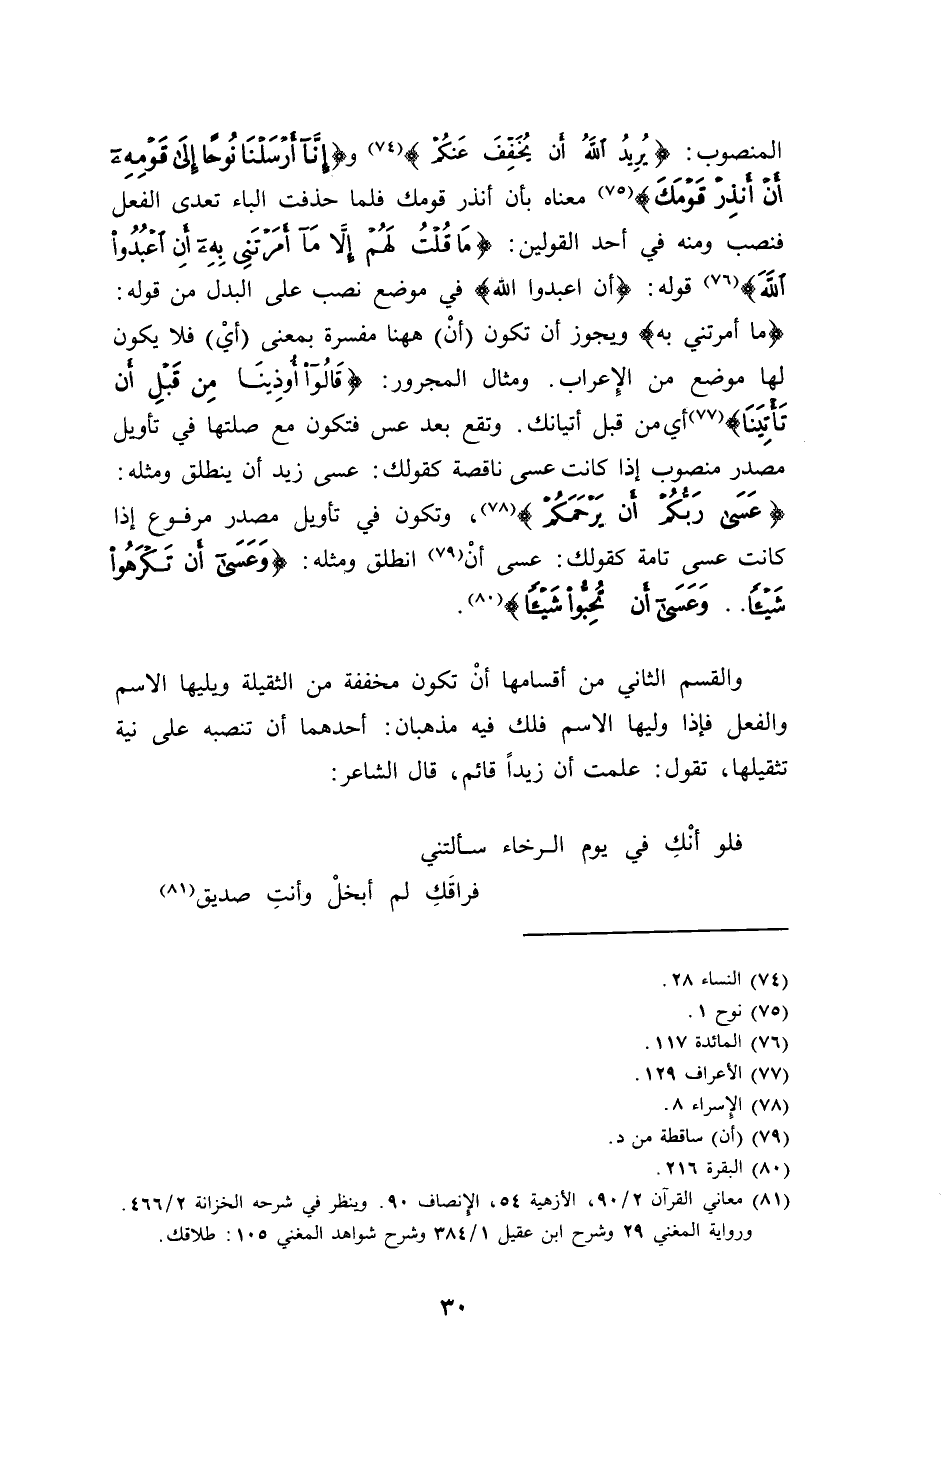 المنصوب: ﴿يُرِيدُ ٱللَّهُ أَن يُخَفِّفَ عَنكُمْ﴾(٧٤) و﴿إِنَّآ أَرْسَلْنَا نُوحًا إِلَىٰ قَوْمِهِۦٓ
أَنْ أَنذِرْ قَوْمَكَ﴾(٧٥) معناه بأن أنذر قومك فلما حذفت الباء تعدى الفعل
فنصب ومنه في أحد القولين: ﴿مَا قُلْتُ لَهُمْ إِلَّا مَآ أَمَرْتَنِى بِهِۦٓ أَنِ ٱعْبُدُوا۟
ٱللَّهَ﴾(٧٦) قوله: ﴿أن اعبدوا الله﴾ في موضع نصب على البدل من قوله:
﴿ما أمرتني به﴾ ويجوز أن تكون (أنْ) ههنا مفسرة بمعنى (أيْ) فلا يكون
لها موضع من الإعراب. ومثال المجرور: ﴿قَالُوٓا۟ أُوذِينَا مِن قَبْلِ أَن
تَأْتِيَنَا﴾(٧٧) أي من قبل أتيانك. وتقع بعد عس فتكون مع صلتها في تأويل
مصدر منصوب إذا كانت عسى ناقصة كقولك: عسى زيد أن ينطلق ومثله:
﴿عَسَىٰ رَبُّكُمْ أَن يَرْحَمَكُمْ﴾(٧٨)، وتكون في تأويل مصدر مرفوع إذا
كانت عسى تامة كقولك: عسى أنْ(٧٩) انطلق ومثله: ﴿وَعَسَىٰٓ أَن تَكْرَهُوا۟
شَيْـًٔا.. وَعَسَىٰٓ أَن تُحِبُّوا۟ شَيْـًٔا﴾(٨٠).
والقسم الثاني من أقسامها أنْ تكون مخففة من الثقيلة ويليها الاسم
والفعل فإذا وليها الاسم فلك فيه مذهبان: أحدهما أن تنصبه على نية
تثقيلها، تقول: علمت أن زيداً قائم، قال الشاعر:
فلو أنْكِ في يوم الرخاء سألتني
فراقَكِ لم أبخلْ وأنتِ صديق(٨١)
(٧٤) النساء ٢٨.
(٧٥) نوح ١.
(٧٦) المائدة ١١٧.
(٧٧) الأعراف ١٢٩.
(٧٨) الإسراء ٨.
(٧٩) (أن) ساقطة من د.
(٨٠) البقرة ٢١٦.
(٨١) معاني القرآن ٩٠/٢، الأزهية ٥٤، الإنصاف ٩٠. وينظر في شرحه الخزانة ٤٦٦/٢.
ورواية المغني ٢٩ وشرح ابن عقيل ٣٨٤/١ وشرح شواهد المغني ١٠٥: طلاقك.
٣٠